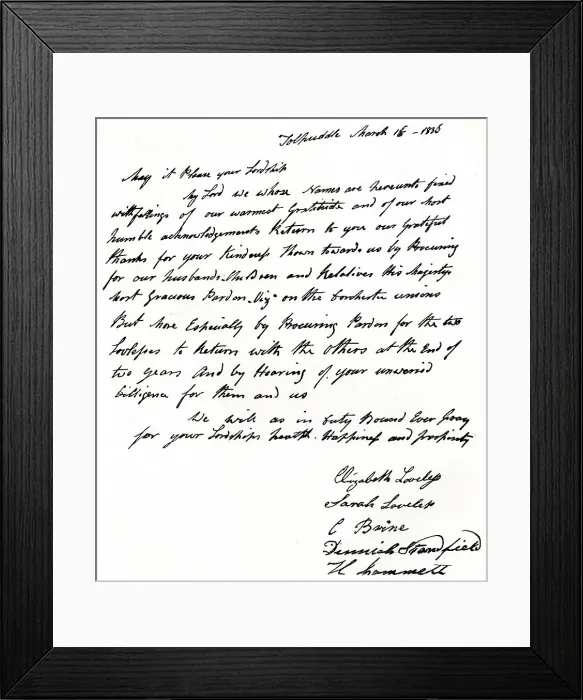 Tolpuddle March 16 - 1836
May it Please your Lordship
My Lord we whose Names are hereunto fixed
with feelings of our warmest Gratitude and of our most
humble acknowledgements Return to you our Grateful
thanks for your Kindness Shown towards us by Procuring
for our husbands Children and Relatives His Majestys
Most Gracious Pardon Viz on the Dorchester unions
But More Especially by Procuring Pardon for the two
Lovelesses to Return with the Others at the End of
two years And by Hearing of your unweried
Dilligence for them and us
We will as in Duty Bound Ever Pray
for your Lordships health Happiness and prosperity
Elizabeth Loveless
Sarah Loveless
C Brine
Dinniah Standfield
H Hammett